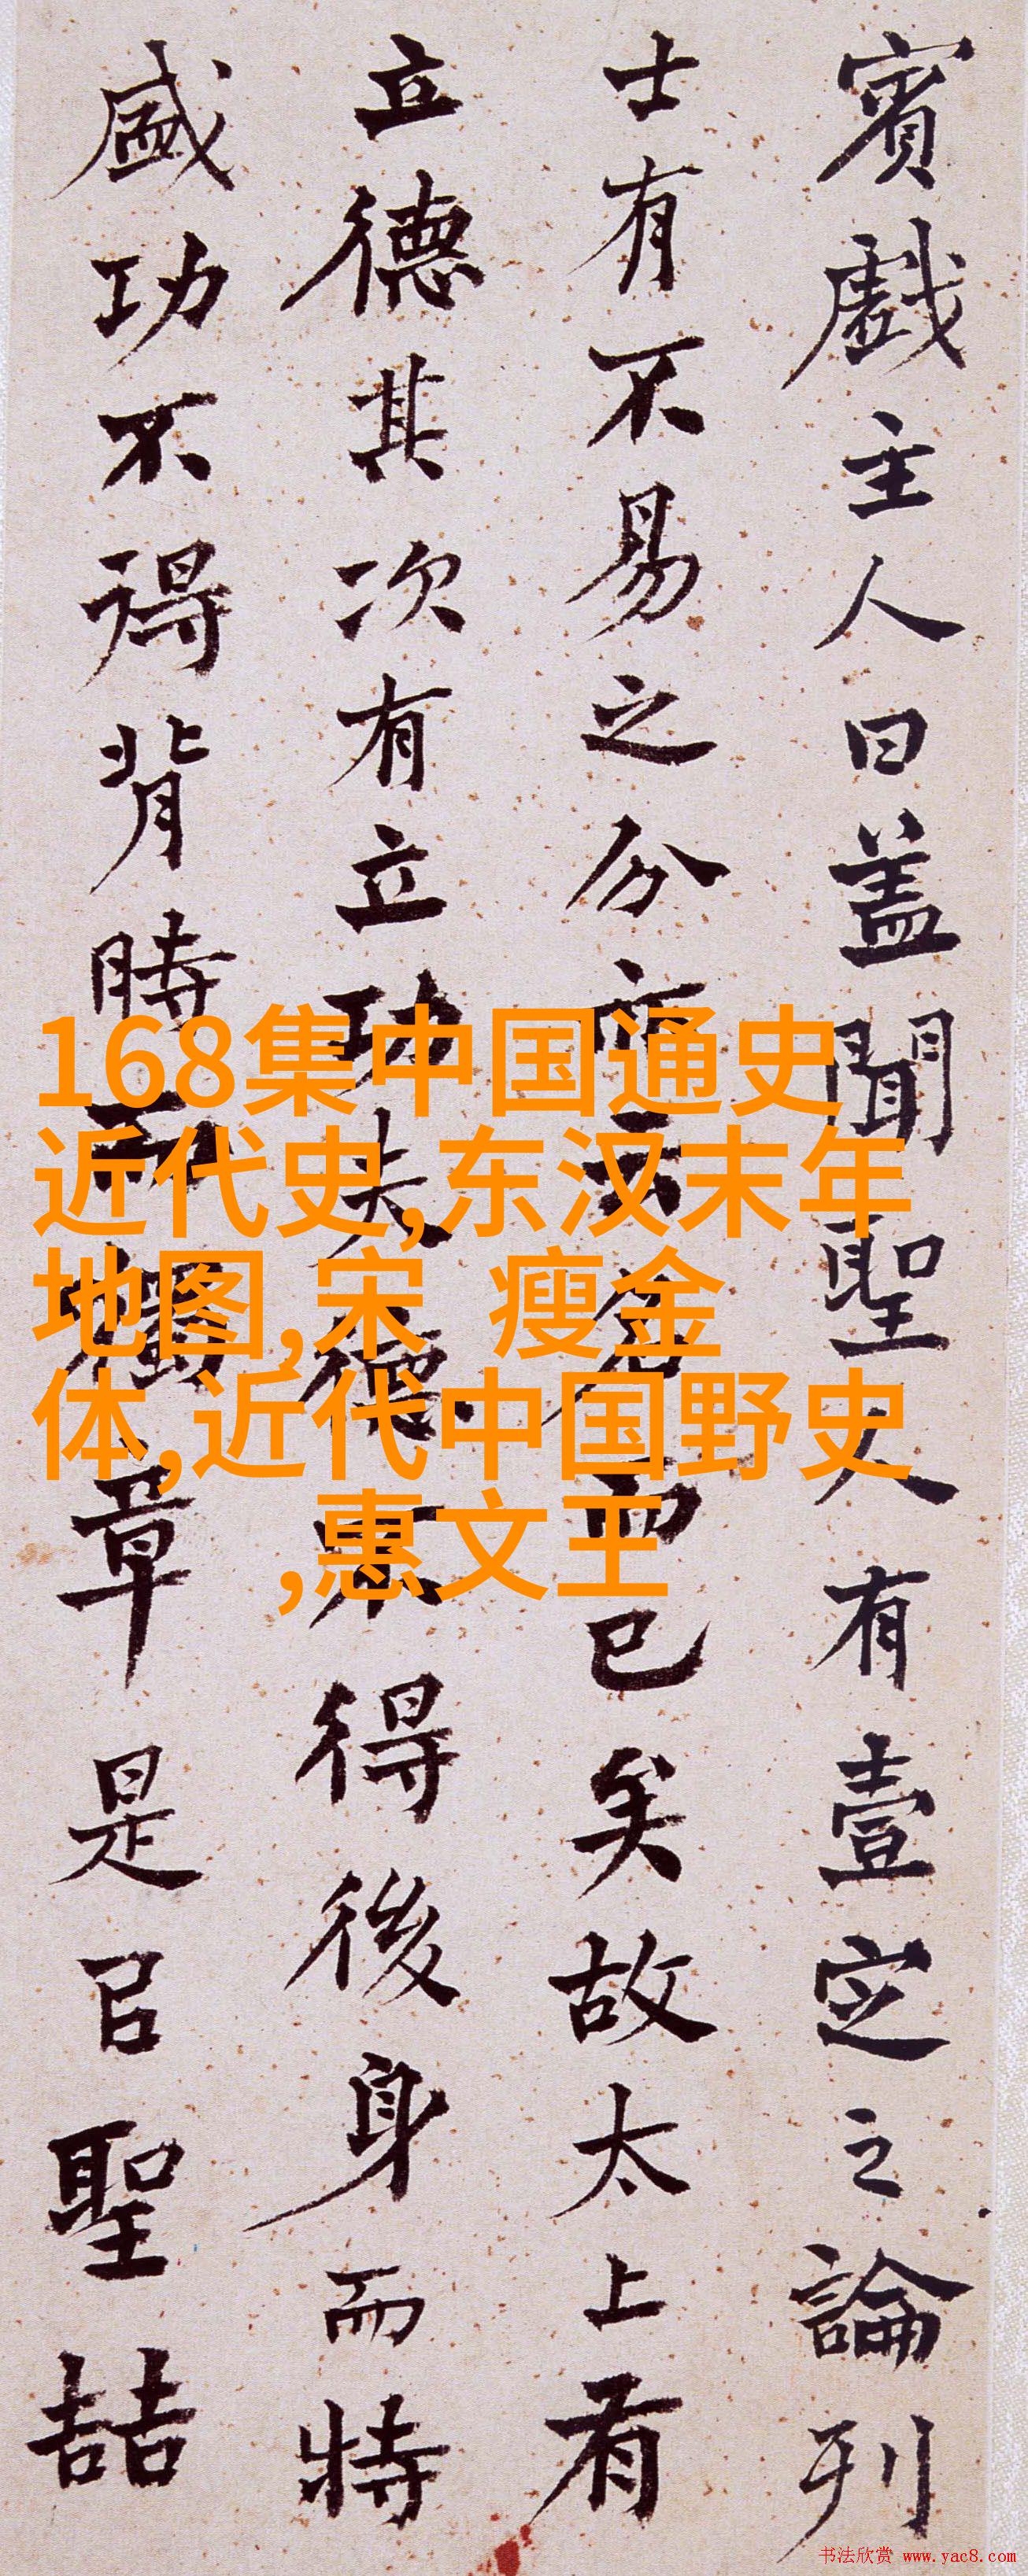 賓戲主人曰蓋聞聖人有壹定之論列
士有不易之分亦云名而已矣故太上有
立德其次有立功夫德不得後身而特
盛功不得背時而獨章是㠯聖喆
168集中国通史
近代史,东汉末年
地图,宋 瘦金
体,近代中国野史
,惠文王
书法欣赏 www.yac8.com